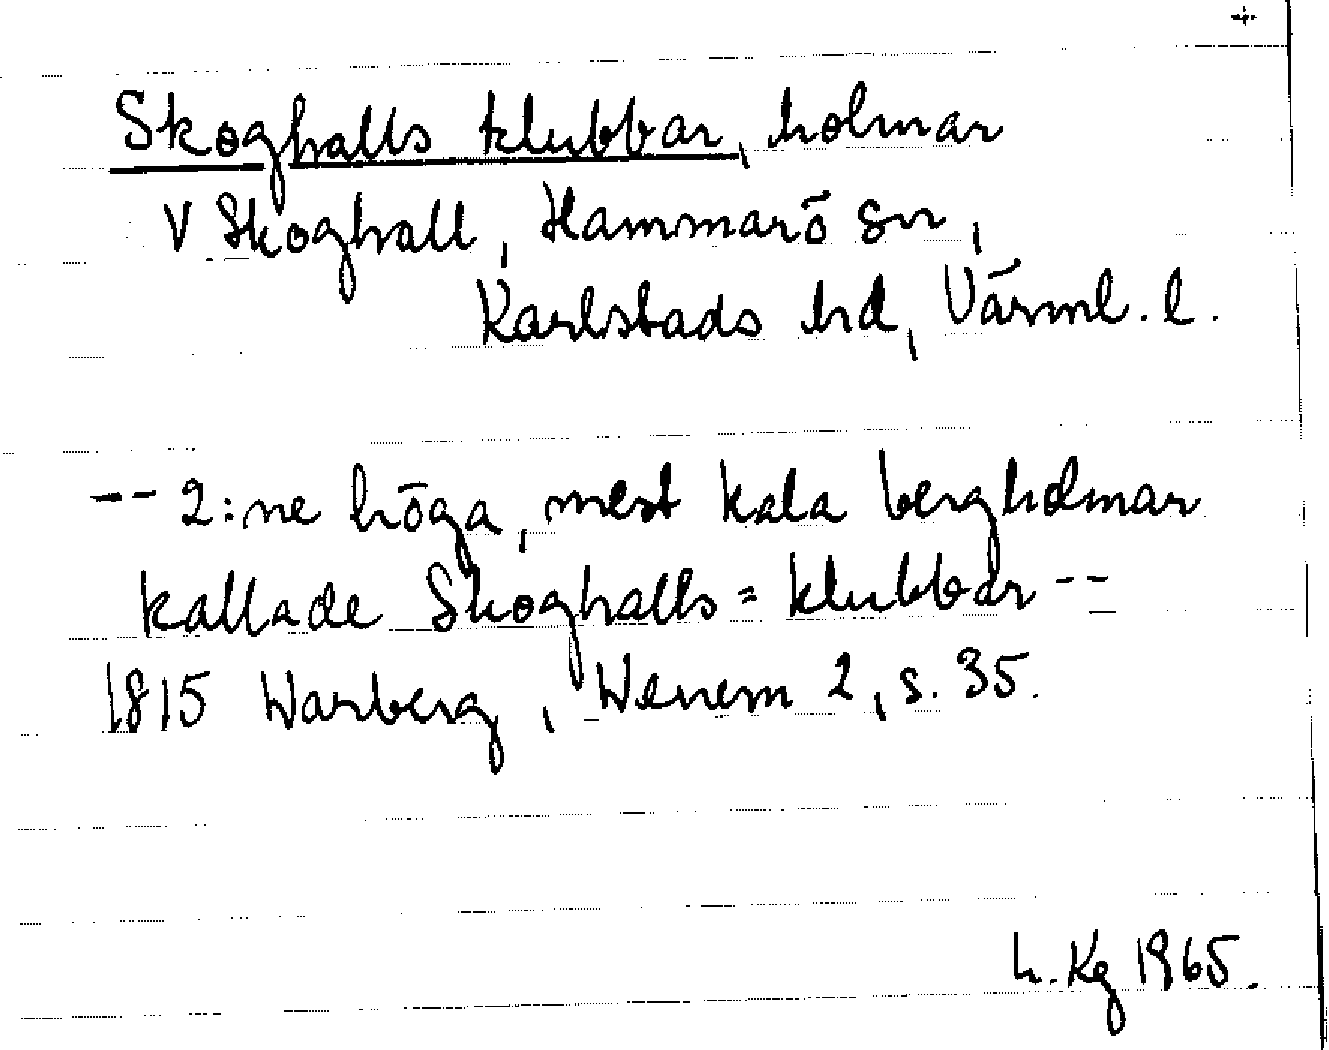 Skoghalls klubbar, holmar
V Skoghall, Hammarö sn,
Karlstads hd, Värml. l.
-- 2:ne höga, mest kala bergholmar
kallade Skoghalls=klubbar --
1815 Warberg, Wenern 2, s. 35.
h. Kg 1965.